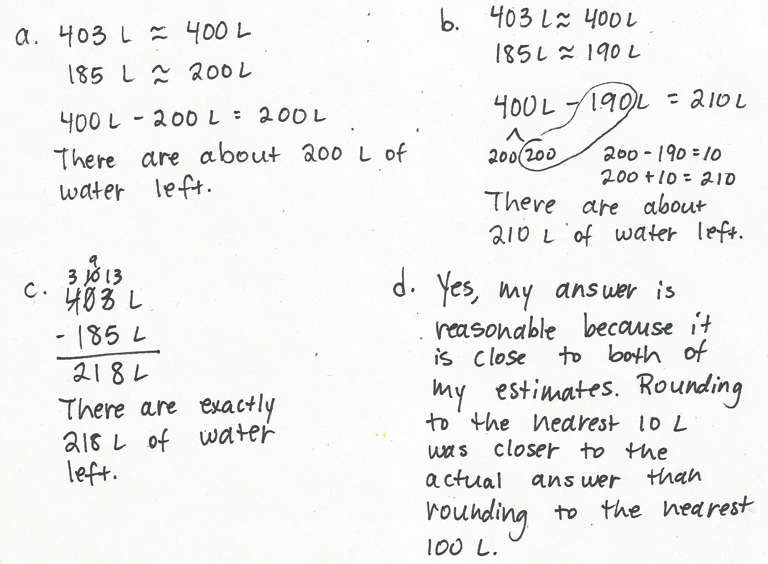 a. 403 L ≈ 400 L
185 L ≈ 200 L
400 L - 200 L = 200 L
There are about 200 L of
water left.
b. 403 L ≈ 400 L
185 L ≈ 190 L
400 L - 190 L = 210 L
200 200 200 - 190 = 10
200 + 10 = 210
There are about
210 L of water left.
c. 9
3 10 13
403 L
- 185 L
218 L
There are exactly
218 L of water
left.
d. Yes, my answer is
reasonable because it
is close to both of
my estimates. Rounding
to the nearest 10 L
was closer to the
actual answer than
rounding to the nearest
100 L.